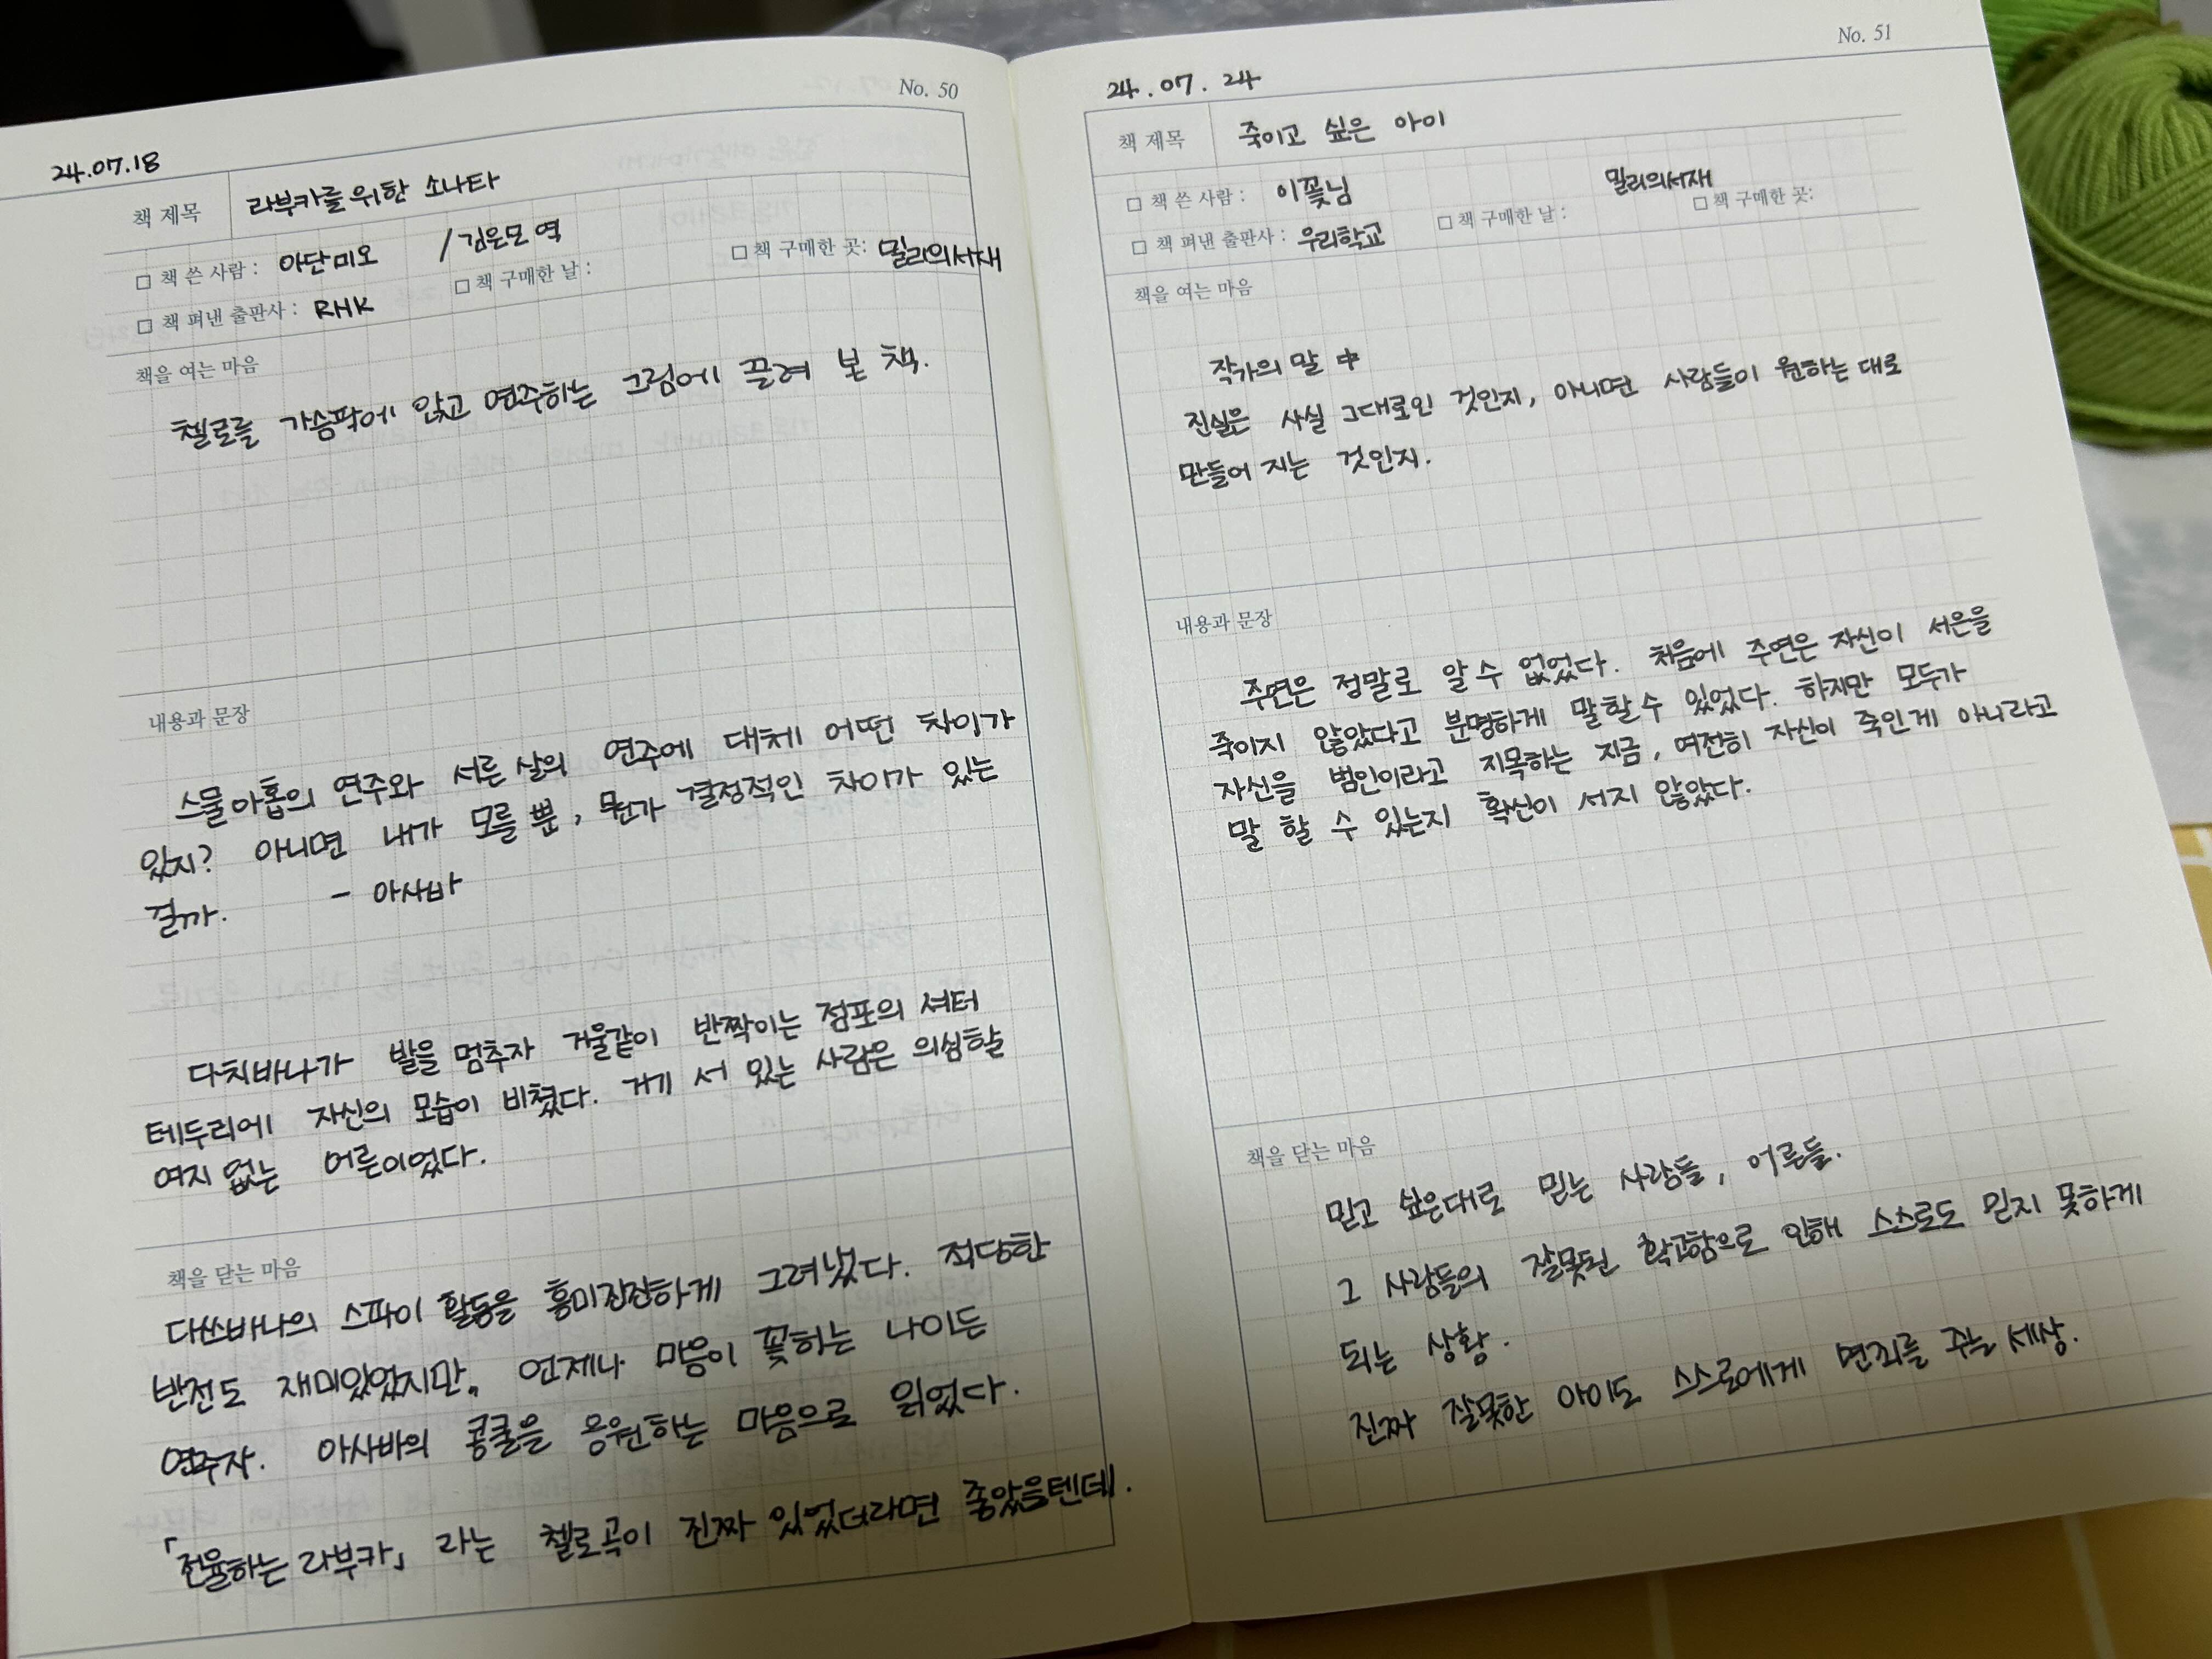 No. 50
24.07.18
책 제목
라부카를 위한 소나타
□ 책 쓴 사람 : 아단미오 /김은모 역
□ 책 구매한 날 :
□ 책 구매한 곳: 밀리의서재
□ 책 펴낸 출판사 : RHK
책을 여는 마음
첼로를 가슴팍에 안고 연주하는 그림에 끌려 본 책.
내용과 문장
스물아홉의 연주와 서른 살의 연주에 대체 어떤 차이가
있지? 아니면 내가 모를 뿐, 뭔가 결정적인 차이가 있는
걸까. - 아사바
다치바나가 발을 멈추자 거울같이 반짝이는 점포의 셔터
테두리에 자신의 모습이 비쳤다. 거기 서 있는 사람은 의심할
여지 없는 어른이었다.
책을 닫는 마음
다쓰바나의 스파이 활동을 흥미진진하게 그려냈다. 적당한
반전도 재미있었지만, 언제나 마음이 꽃하는 나이든
연주자. 아사바의 콩쿨을 응원하는 마음으로 읽었다.
「전율하는 라부카」 라는 첼로곡이 진짜 있었더라면 좋았을텐데.
No. 51
24.07.24
책 제목
죽이고 싶은 아이
□ 책 쓴 사람 : 이꽃님
□ 책 구매한 날 :
밀리의서재
□ 책 구매한 곳:
□ 책 펴낸 출판사 : 우리학교
책을 여는 마음
작가의 말 中
진실은 사실 그대로인 것인지, 아니면 사람들이 원하는 대로
만들어 지는 것인지.
내용과 문장
주연은 정말로 알 수 없었다. 처음에 주연은 자신이 서은을
죽이지 않았다고 분명하게 말할 수 있었다. 하지만 모두가
자신을 범인이라고 지목하는 지금, 여전히 자신이 죽인게 아니라고
말 할 수 있는지 확신이 서지 않았다.
책을 닫는 마음
믿고 싶은대로 믿는 사람들, 어른들.
그 사람들의 잘못된 확고함으로 인해 스스로도 믿지 못하게
되는 상황.
진짜 잘못한 아이도 스스로에게 면죄를 주는 세상.